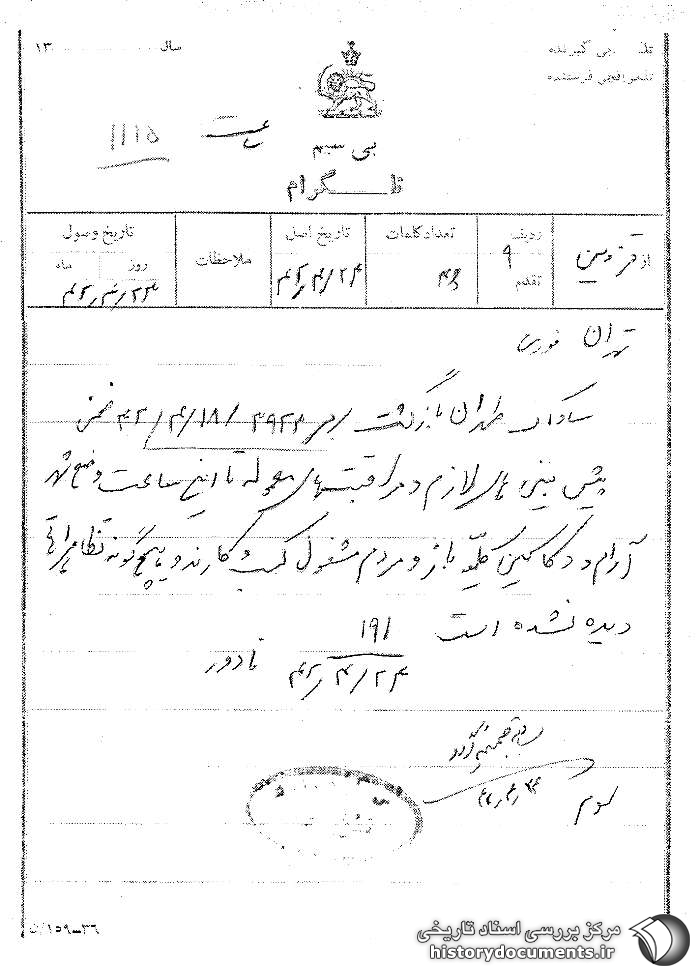 سال ۱۳
گیرنده
فرستنده
ساعت ۱۱۱۵
بی سیم
تلگرام
از قزوین
ردیف ۹
تقدم
تعداد کلمات
۴۶
تاریخ اصل
۴۲/۴/۲۴
ملاحظات
تاریخ وصول
روز ماه
۴۲/۴/۲۴
تهران فوری
ساواک طهران بازگشت ۳۹۲۴ /۴۲/۴/۱۸ ضمن
پیش بینی های لازم و مراقبتهای معموله تا این ساعت وضع شهر
آرام و دکاکین کلیه باز و مردم مشغول کسب و کارند و هیچگونه تظاهراتی
دیده نشده است ۱۹۱
۴۲/۴/۲۴ نادور
سوم
۱۵۹-۳۶
مرکز بررسی اسناد تاریخی
historydocuments.ir